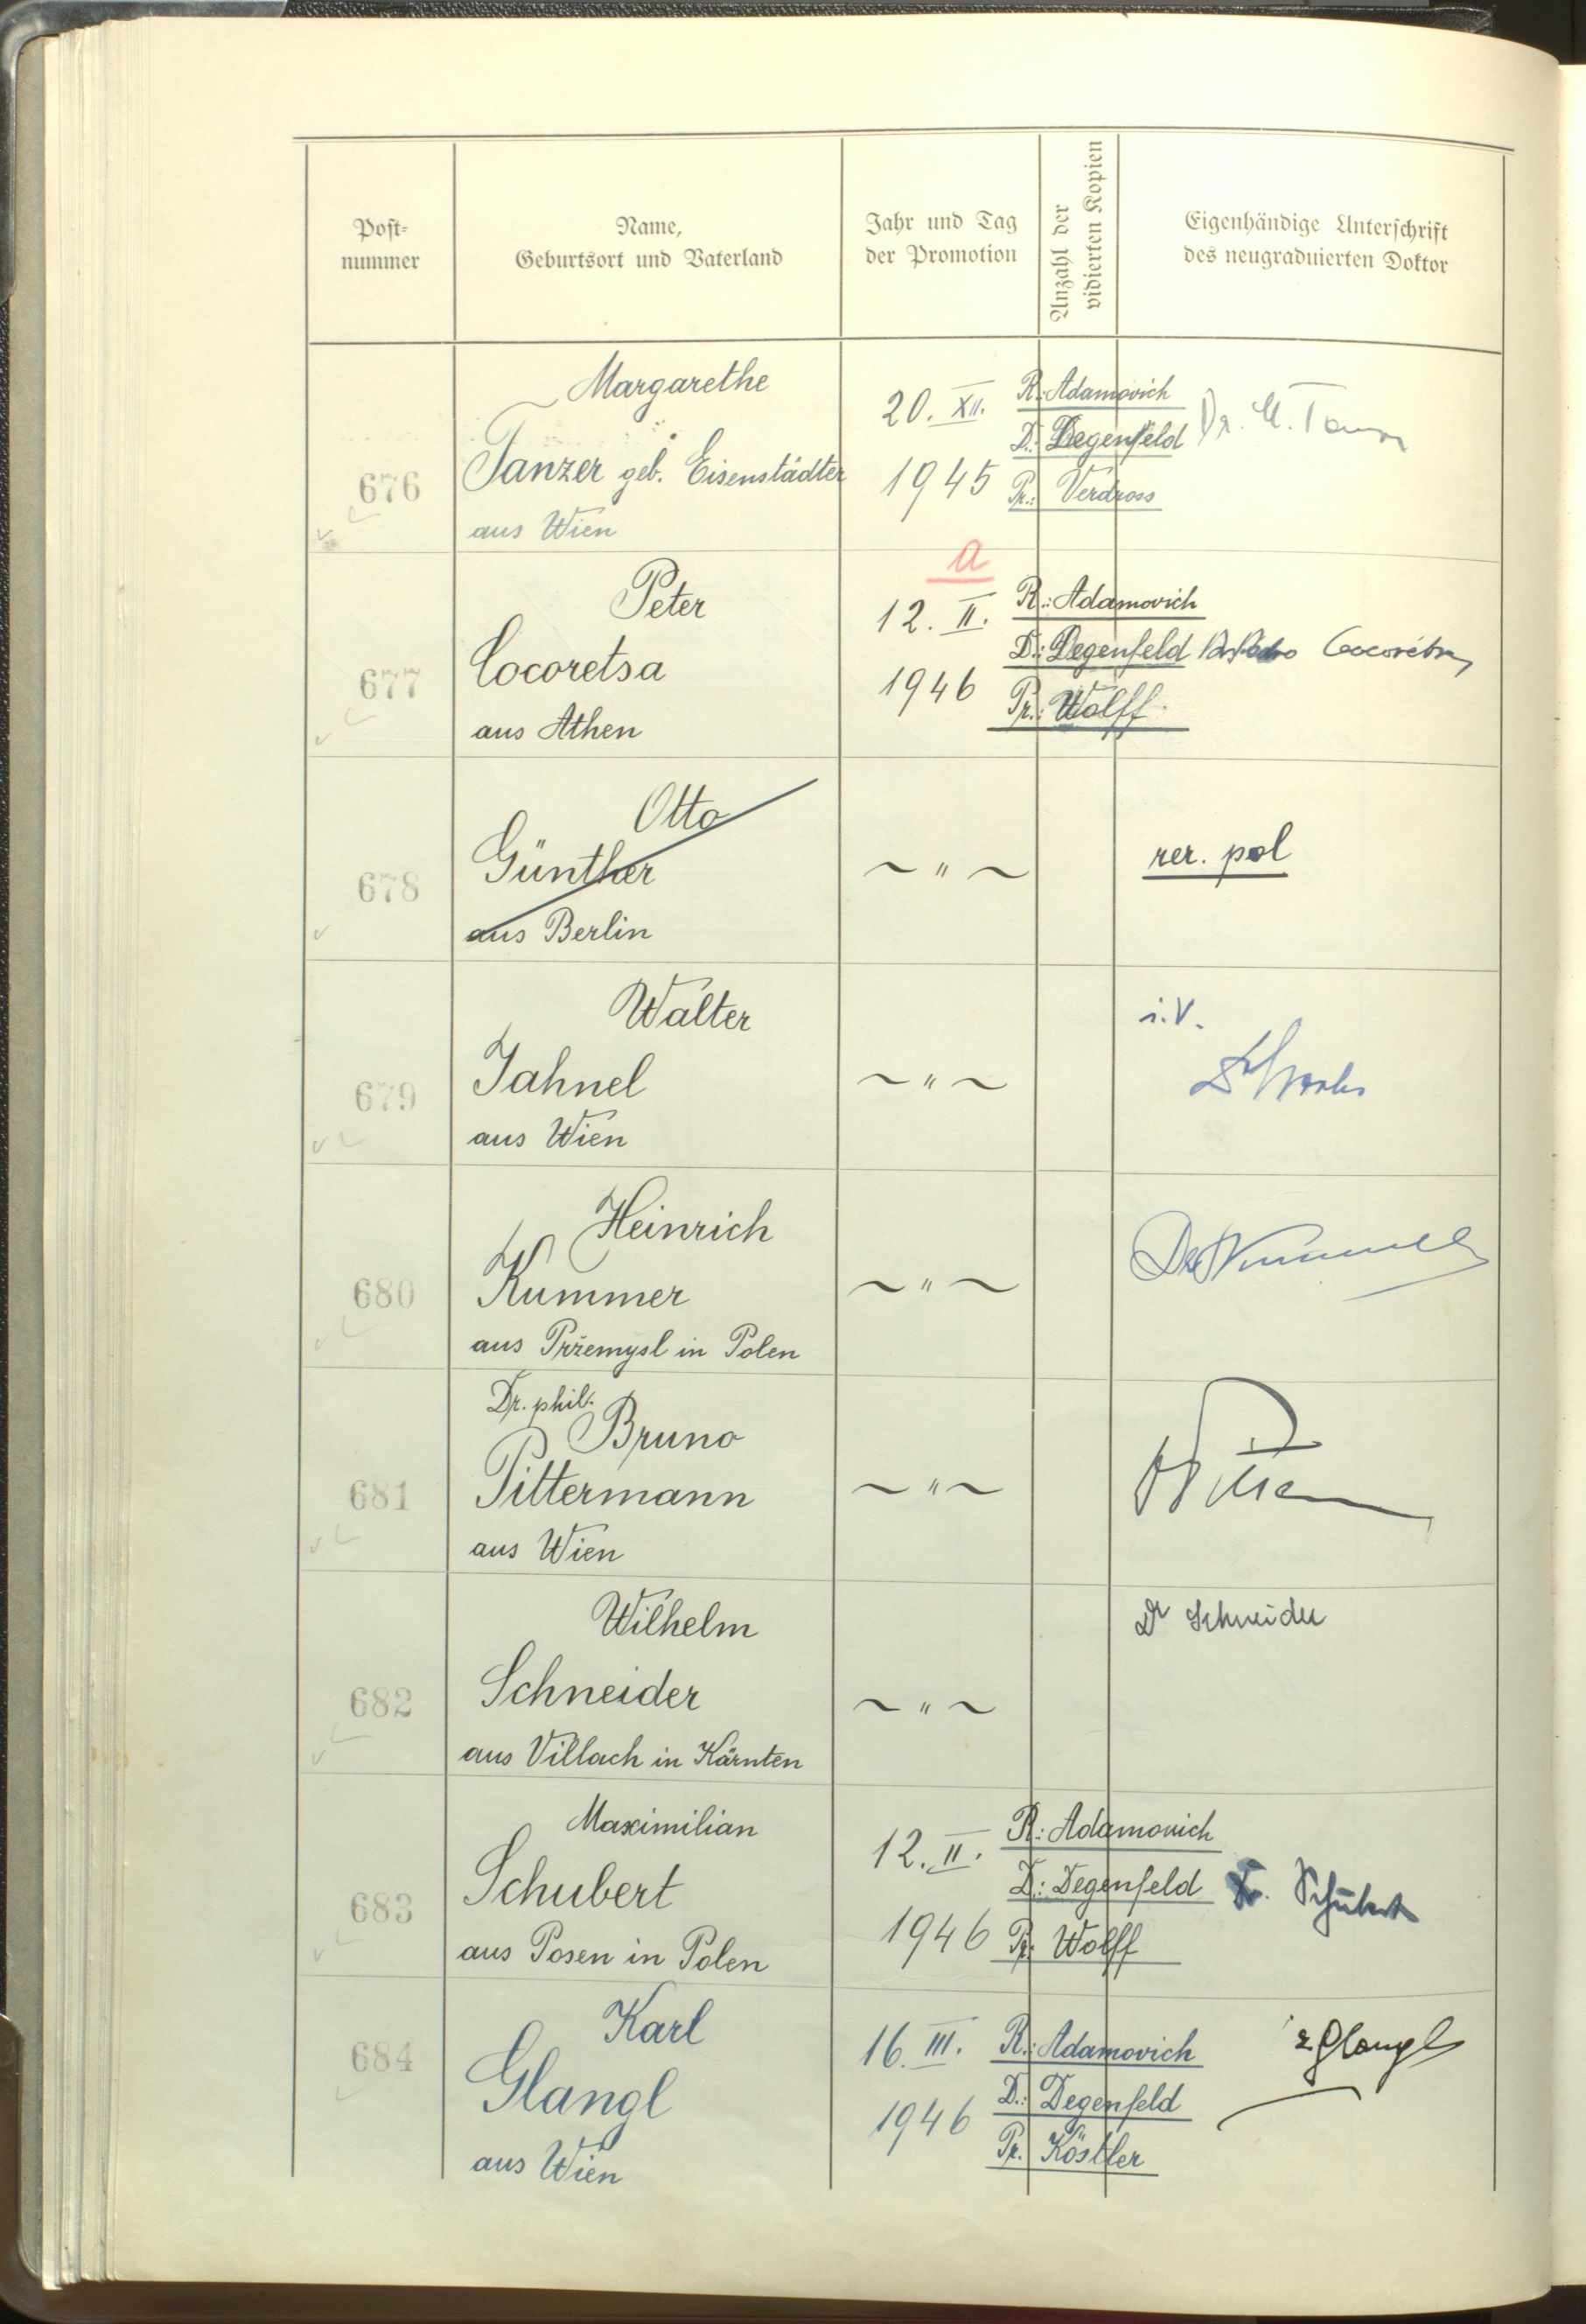 Post-
nummer
Name,
Geburtsort und Vaterland
Jahr und Tag
der Promotion
Anzahl der
vidierten Kopien
Eigenhändige Unterschrift
des neugraduierten Doktor
676
Margarethe
Tanzer geb. Eisenstädter
aus Wien
20. XII.
1945
R.: Adamovich
D.: Degenfeld
Pr.: Verdross
Dr. M. Tanzer
677
Peter
Cocoretsa
aus Athen
a
12. II.
1946
R.: Adamovich
D.: Degenfeld
Pr.: Wolff
Cocorétsa
678
Otto
Günther
aus Berlin
~ " ~
rer. pol
679
Walter
Jahnel
aus Wien
~ " ~
i.V.
680
Heinrich
Kummer
aus Przemysl in Polen
~ " ~
681
Dr. phil.
Bruno
Pittermann
aus Wien
~ " ~
682
Wilhelm
Schneider
aus Villach in Kärnten
~ " ~
Dr Schneider
683
Maximilian
Schubert
aus Posen in Polen
12. II.
1946
R.: Adamovich
D.: Degenfeld
Pr: Wolff
Dr. Schubert
684
Karl
Glangl
aus Wien
16. III.
1946
R.: Adamovich
D.: Degenfeld
Pr. Köstler
Glangl